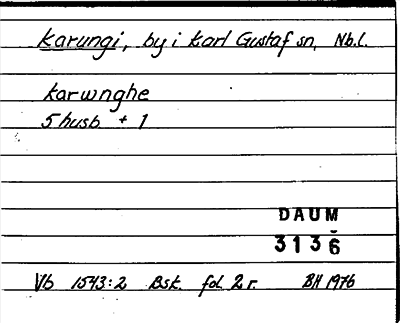 Karungi, by i Karl Gustaf sn, Nb.l.
karwnghe
5 husb + 1
DAUM
3136
Vb 1543:2 Bsk. fol. 2 r. BH 1976